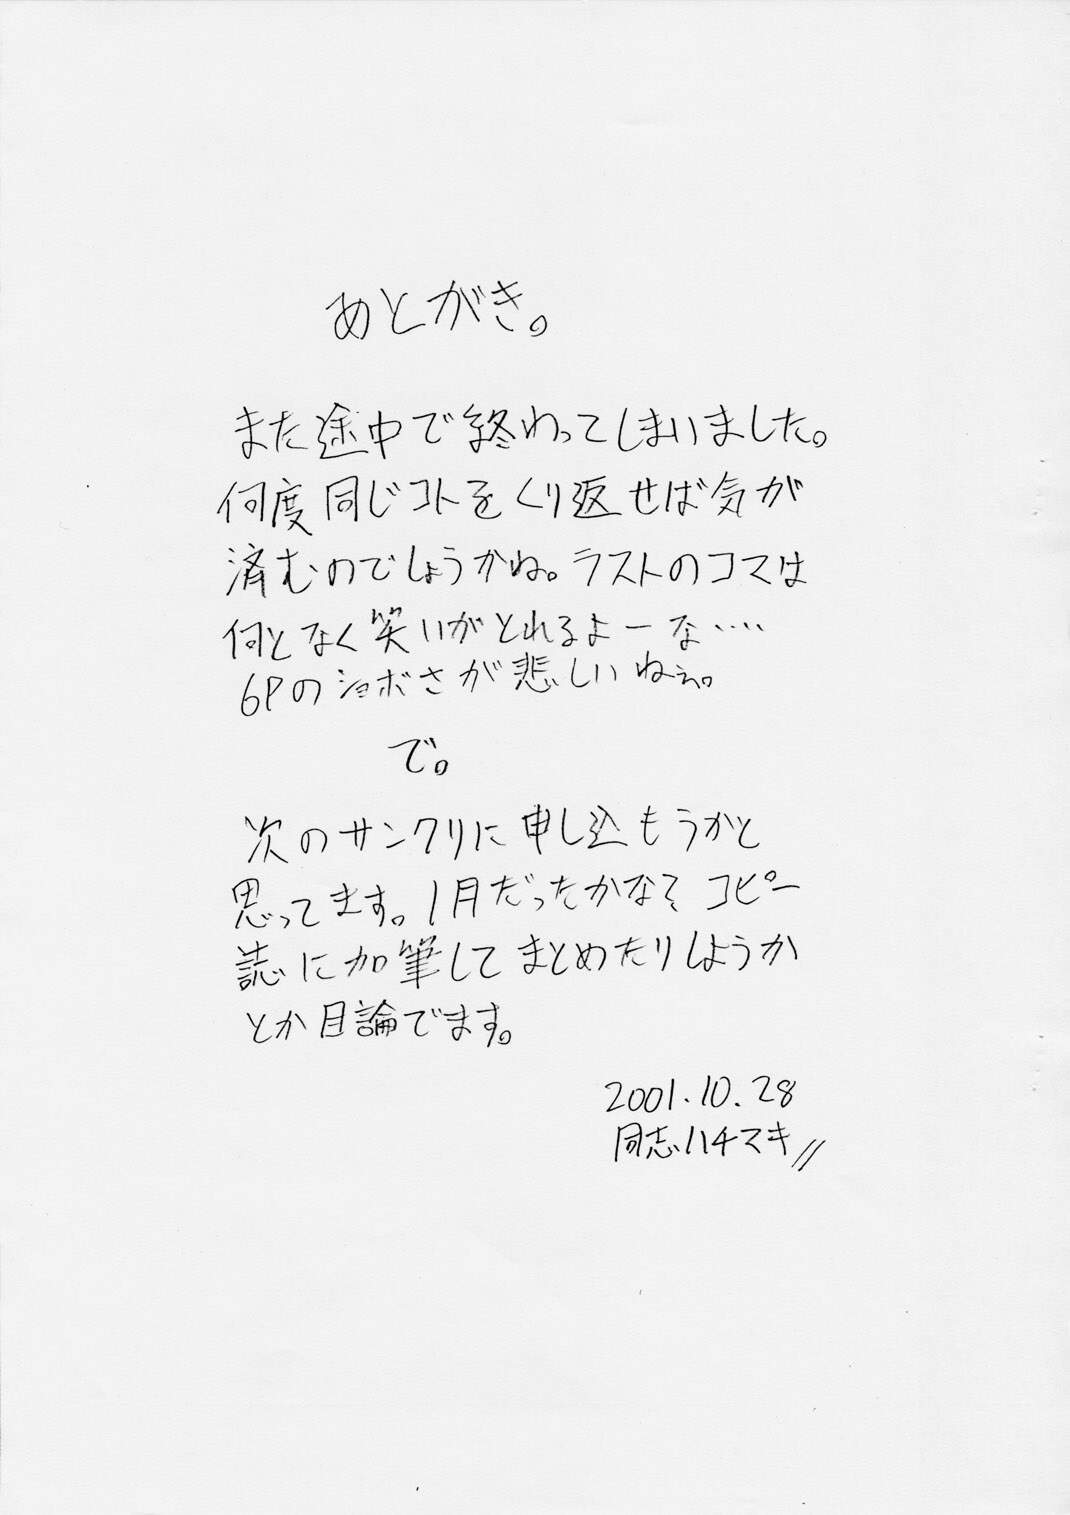 あとがき。
また途中で終わってしまいました。
何度同じコトをくり返せば気が
済むのでしょうかね。ラストのコマは
何となく笑いがとれるよーな‥‥
6Pのショボさが悲しいねぇ。
で。
次のサンクリに申し込もうかと
思ってます。1月だったかな? コピー
誌に加筆してまとめたりしようか
とか目論でます。
2001.10.28
同志ハチマキ//